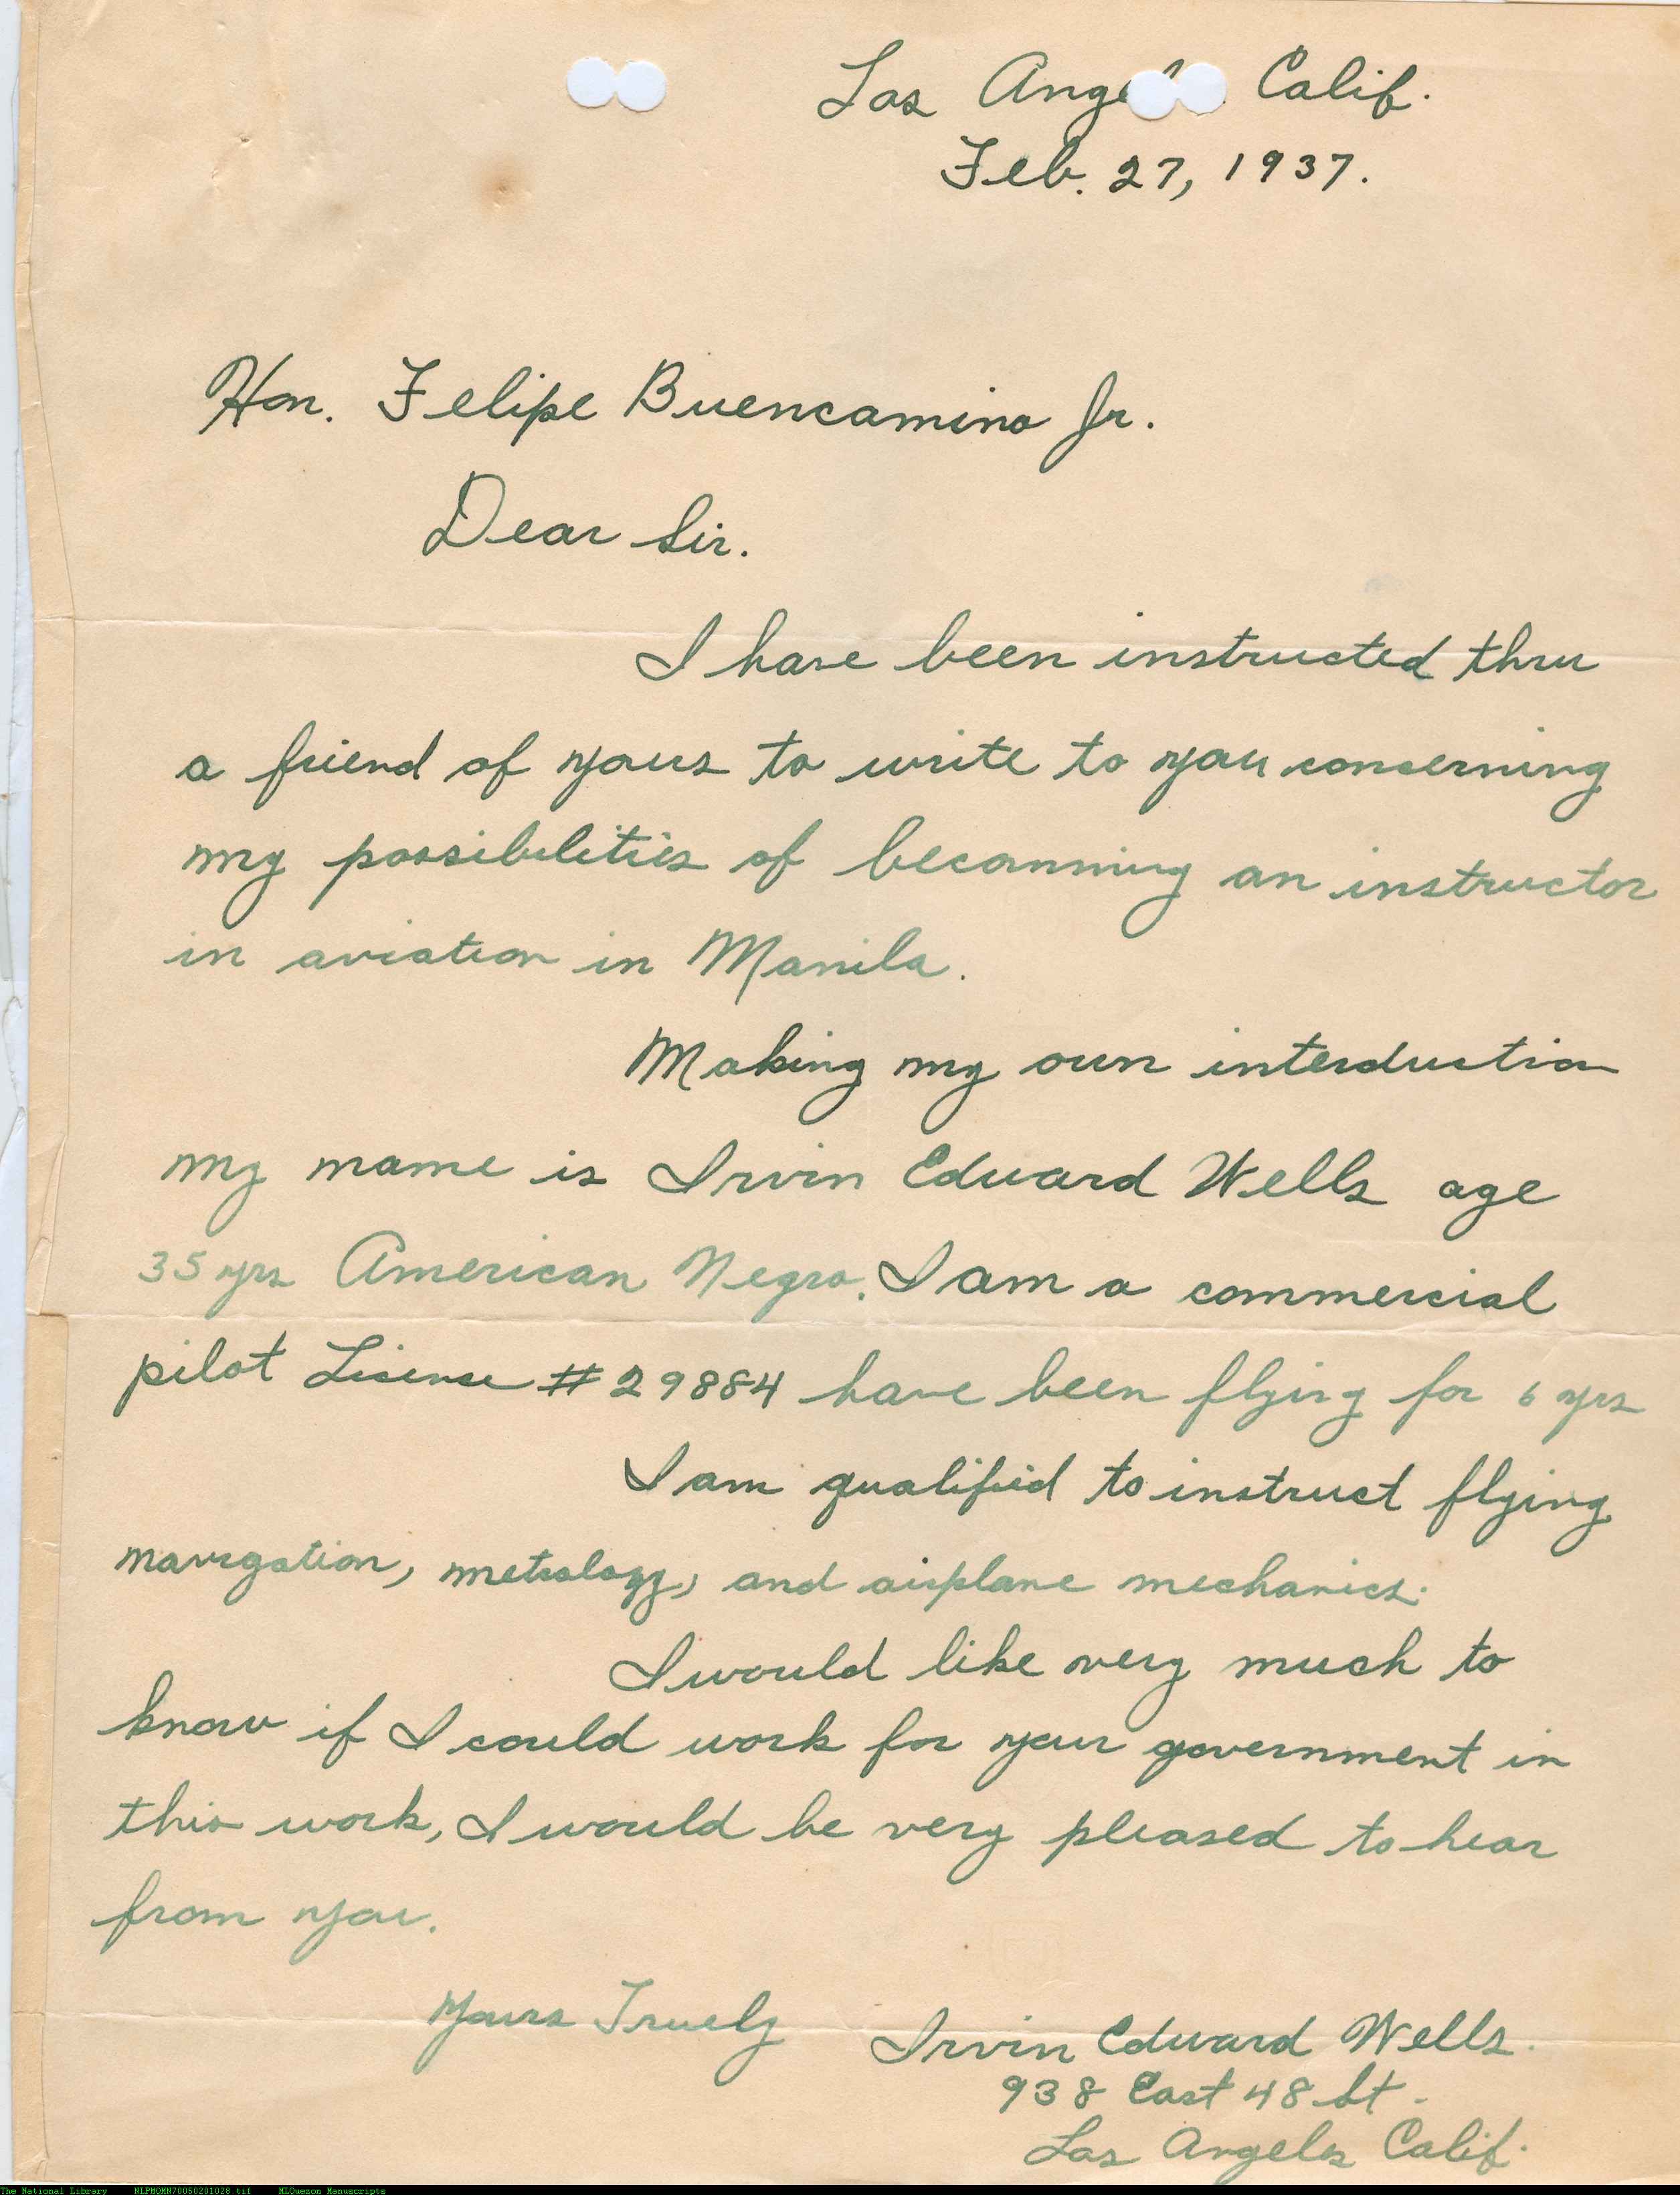 Los Angeles Calif.
Feb. 27, 1937.
Hon. Felipe Buencamino Jr.
Dear Sir.
I have been instructed thru
a friend of yours to write to you concerning
my possibilities of becomming an instructor
in aviation in Manila.
Making my own interduction
my name is Irvin Edward Wells age
35 yrs American Negro. I am a commercial
pilot Lisense # 29884 have been flying for 6 yrs
I am qualified to instruct flying
navigation, metrology, and airplane mechanics.
I would like very much to
know if I could work for your government in
this work, I would be very pleased to hear
from you.
Yours Truely
Irvin Edward Wells.
938 East 48 St.
Los Angeles Calif.
The National Library NLPMQMN70050201028.tif MLQuezon Manuscripts